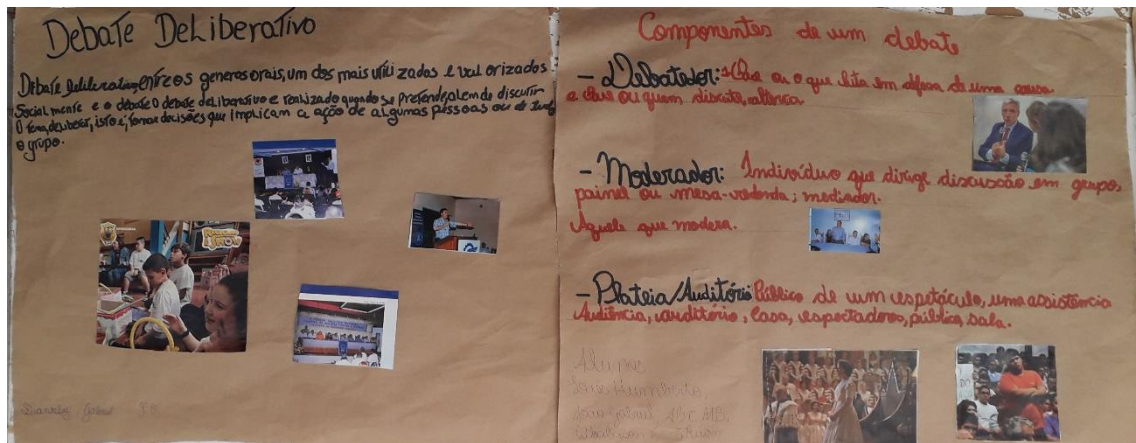 Debate Deliberativo
Debate deliberativo, entre os generos orais, um dos mais utilizados e valorizados
Socialmente e o debate o debate deliberativo e realizado quando se pretende, alem de discutir
O tema, deliberar, isto é, tomar decisões que implicam a ação de algumas pessoas ou de todo
o grupo.
Componentes de um debate
- Debatedor: ou o que luta em defesa de uma causa
e ou quem discute, alterca
- Moderador: Indivíduo que dirige discussão em grupos,
painel ou mesa-redonda; mediador.
Aquele que modera.
- Plateia/Auditório: Público de um espetáculo, uma assistência
Audiência, auditório, casa, espectadores, público, sala.
Alunos
Humberto
Gabriel